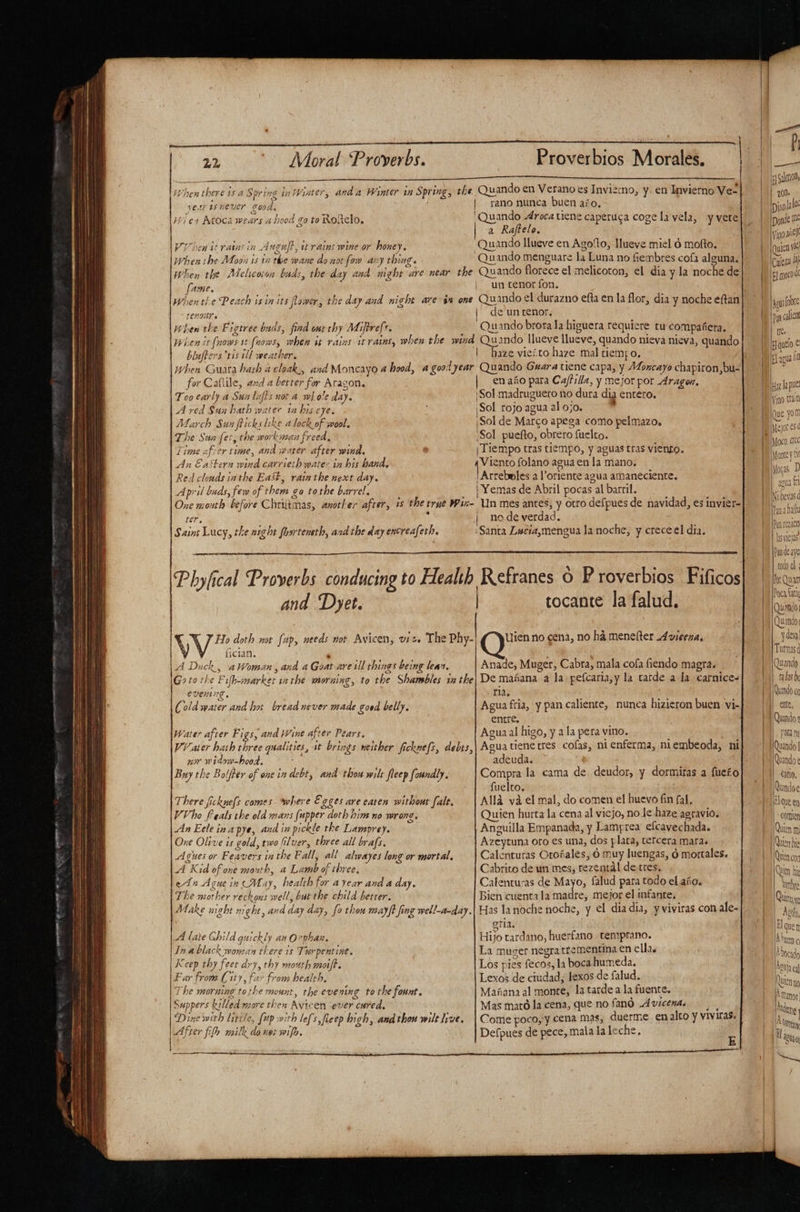 22 Moral Proverbs.
When there is a Spring in Winter, and a Winter in Spring, the
year is never good.
When Atoca wears a hood go to Rostelo.
VVhen it rains in August, it rains wine or honey.
When the Moon is in the wane do not sow any thing.
When the Melicoton buds, the day and night are near the
same.
When the Peach is in its flower, the day and night are in one
tenour.
When the Figtree buds, find out thy Mistress.
When it snows it snows, when it rains it rains, when the wind
blusters 'tis ill weather.
When Guara hath a cloak, and Moncayo a hood, a good year
for Castile, and a better for Aragon.
Too early a Sun lasts not a whole day.
A red Sun hath water in his eye.
March Sun sticks like a lock of wool.
The Sun set, the workman freed.
Time after time, and water after wind.
An Eastern wind carrieth water in his hand.
Red clouds in the East, rain the next day.
April buds, few of them go to the barrel.
One mouth before Christmas, another after, is the true Win-
ter.
Saint Lucy, the night shorteneth, and the day encreaseth.
Proverbios Morales.
Quando en Verano es Invierno, y en Invierno Ve-
rano nunca buen año.
Quando Atoca tiene caperuça coge la vela, y vete
a Rastelo.
Quando llueve en Agosto, llueve miel ò mosto.
Quando menguare la Luna no siembres cosa alguna.
Quando florece el melicoton, el dia y la noche de
un tenor son.
Quando el durazno esta en la flor, dia y noche estan
de un tenor.
Quando brota la higuera requiere tu compañera.
Quando llueve llueve, quando nieva nieva, quando
haze viento haze mal tiempo.
Quando Guara tiene capa, y Moncayo chapiron, bu-
en año para Castilla, y mejor por Aragon.
Sol madruguero no dura dia entero.
Sol rojo agua al ojo.
Sol de Março apega como pelmazo.
Sol puesto, obrero suelto.
Tiempo tras tiempo, y aguas tras viento.
Viento solano agua en la mano.
Arreboles a l'oriente agua amaneciente.
Yemas de Abril pocas al barril.
Un mes antes, y otro despues de navidad, es invier-
no de verdad.
Santa Lucia, mengua la noche, y crece el dia.
Physical Proverbs conducing to Health
and Dyet.
VVHo doth not sup, needs not Avicen, viz. The Phy-
sician.
A Duck, a Woman, and a Goat are ill things being lean.
Go to the Fish-market in the morning, to the Shambles in the
evening.
Cold water and hot bread never made good belly.
Water after Figs, and Wine after Pears.
VVater hath three qualities, it brings neither sickness, debts,
nor widow-hood.
Buy the Bolster of one in debt, and thou wilt sleep soundly.
There sickness comes where Egges are eaten without salt.
VVho steals the old mans supper doth him no wrong.
An Eele in a pye, and in pickle the Lamprey.
One Olive is gold, two silver, three all brass.
Agues or Feavers in the Fall, all alwayes long or mortal.
A Kid of one mouth, a Lamb of three.
An Ague in May, health for a year and a day.
The mother reckons well, but the child better.
Make night night, and day day, so thou mayst sing well-a-day.
A late Child quickly an Orphan.
In a black woman there is Turpentine.
Keep thy feet dry, thy mouth moist.
Far from City, far from health.
The morning to the mount, the evening to the fount.
Suppers killed more then Avicen ever cured.
Dine with little, sup with less, sleep high, and thou wilt live.
After fish milk do not wish.
Refranes ò Proverbios Fisicos
tocante la salud.
QUien no çena, no hà menester Avicena.
Anade, Muger, Cabra, mala cosa siendo magra.
De mañana a la pescaria, y la tarde a la carnice-
ria.
Agua fria, y pan caliente, nunca hizieron buen vi-
entre.
Agua al higo, y a la pera vino.
Agua tiene tres cosas, ni enferma, ni embeoda, ni
adeuda.
Compra la cama de deudor, y dormiras a sueño
suelto.
Allà và el mal, do comen el huevo sin sal.
Quien hurta la cena al viejo, no le haze agravio.
Anguilla Empanada, y Lamprea escavechada.
Azeytuna oro es una, dos plata, tercera mara.
Calenturas Otoñales, ò muy luengas, ò mortales.
Cabrito de un mes, rezentàl de tres.
Calenturas de Mayo, salud para todo el año.
Bien cuenta la madre, mejor el infante.
Has la noche noche, y el dia dia, y viviras con ale-
gria.
Hijo tardano, huerfano temprano.
La muger negra trementina en ella.
Los pies secos, la boca humeda.
Lexos de ciudad, lexos de salud.
Mañana al monte, la tarde a la fuente.
Mas matò la cena, que no sanò Avicena.
Come poco, y cena mas, duerme en alto y viviras.
Despues de pece, mala la leche.
E